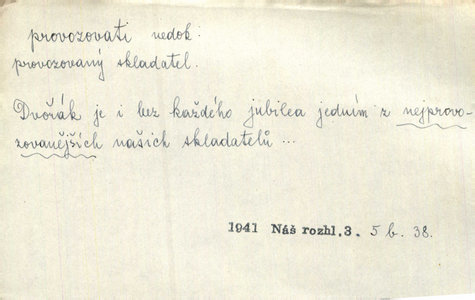 provozovati nedok:
provozovaný skladatel.
Dvořák je i bez každého jubilea jedním z nejprovo-
zovanějších našich skladatelů ...
1941 Náš rozhl.3. 5 b. 38.